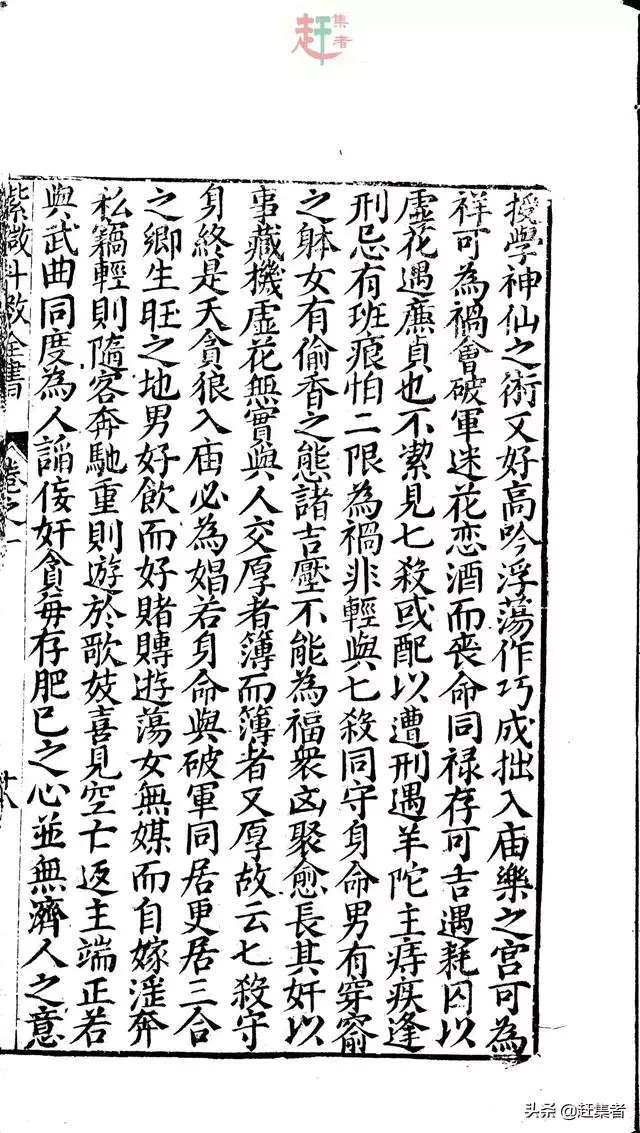 赶集者
授學神仙之術又好高吟浮蕩作巧成拙入庙樂之宮可為
祥可為禍會破軍迷花恋酒而喪命同禄存可吉遇耗囚以
虛花遇廉貞也不潔見七殺或配以遭刑遇羊陀主痔疾逢
刑忌有班痕怕二限為禍非輕與七殺同守身命男有穿窬
之躰女有偷香之態諸吉壓不能為福衆凶聚愈長其奸以
事藏機虛花無實與人交厚者簿而簿者又厚故云七殺守
身終是夭貪狼入庙必為娼若身命與破軍同居更居三合
之鄉生旺之地男好飲而好賭賻遊蕩女無媒而自嫁滛奔
私竊輕則隨客奔馳重則遊於歌妓喜見空亡返主端正若
與武曲同度為人謟侫奸貪毎存肥己之心並無濟人之意
紫微斗数全書 卷之一 廿八
头条 @赶集者